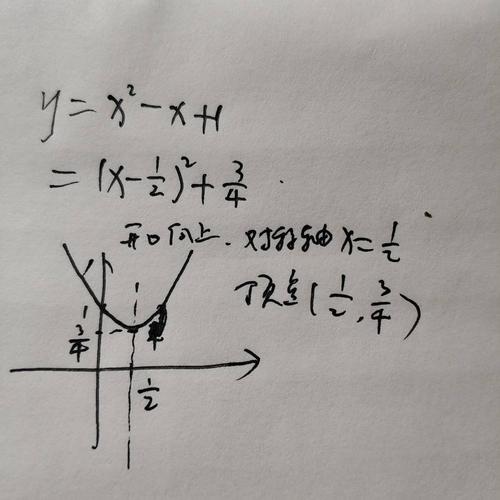 y = x² - x + 1
= (x - 1/2)² + 3/4
开口向上. 对称轴 x = 1/2
顶点 (1/2, 3/4)
1
3/4
1/2